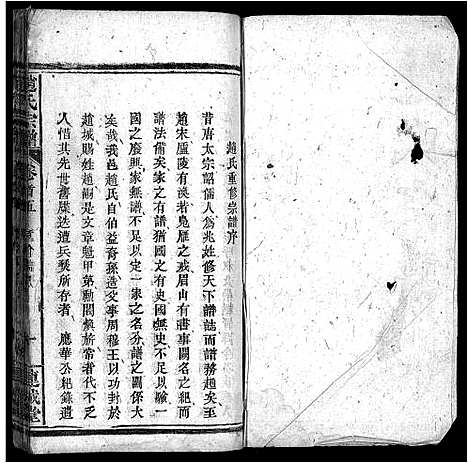 趙氏重修宗譜序
昔唐太宗詔儒人為兆姓修天下譜誌而譜務起矣至
趙宋廬陵有亮若鳧雁之戒眉山有莊事闕名之言而
譜法備矣家之有譜猶國之有史國無史不足以驗一
國之廢興家無譜不足以定一家之名分譜之關係大
矣哉我邑趙氏自伯益裔孫造父事周穆王以功封於
趙城賜姓趙嗣是文章魁甲第勳閥煥旂常者代不乏
人惜其先世舊牒迭遭兵燹所存者 應華公紀錄遺
趙氏宗譜
卷首五